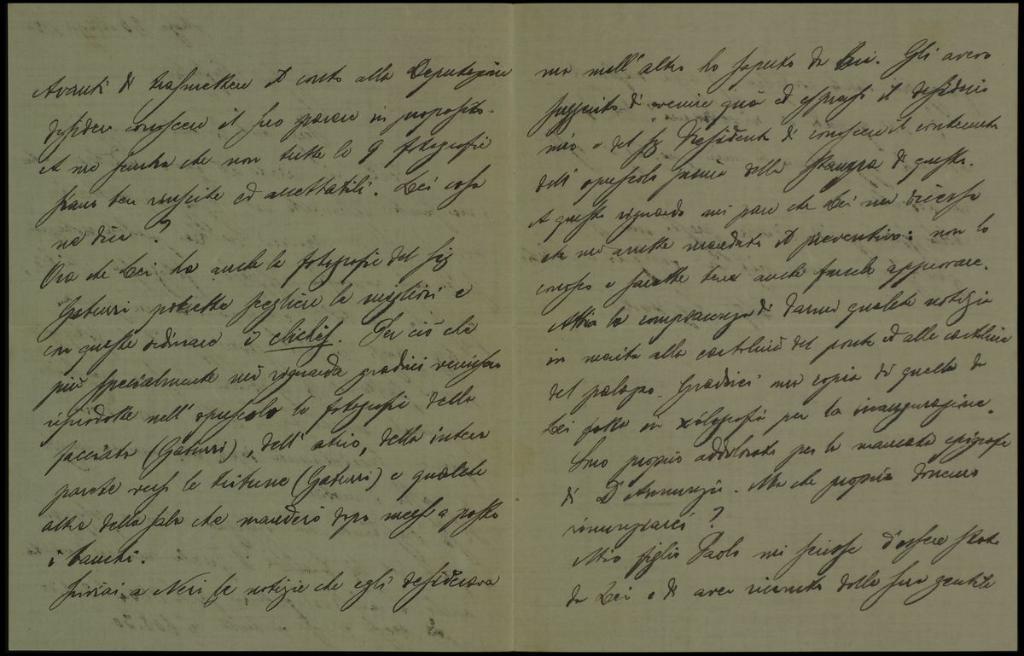 Avanti di trasmettere il conto alla Deputazione
desidero conoscere il suo parere in proposito.
A me sembra che non tutte le 9 fotografie
siano ben riuscite ed accettabili. Lei cosa
ne dice?
Ora che Lei ha anche le fotografie del Sig
potrebbe scegliere le migliori e
con queste ordinare i clichés. Per ciò che
più specialmente mi riguarda gradirei venissero
riprodotte nell'opuscolo le fotografie della
facciata, dell'atrio, della intera
parete verso le tribune e qualche
altra della sala che manderò dopo messi a posto
i banchi.
Scrissi a Neri le notizie che egli desiderava
ma null'altro ho saputo da Lui. Gli avevo
suggerito di venire quà ed espressi il desiderio
mio e del Sig Presidente di conoscere il contenuto
dell'opuscolo prima della stampa di questo.
A questo riguardo mi pare che Lei mi dicesse
che mi avrebbe mandato il preventivo: non lo
conosco e sarebbe bene anche farselo approvare.
Abbia la compiacenza di darmi qualche notizia
in merito alla cartolina del ponte ed alle cartoline
del palazzo. Gradirei una copia di quella da
Lei fatta in xilografia per la inaugurazione.
Sono proprio addolorato per la mancata epigrafe
di D'Annunzio. Ma che proprio dovremo
rinunziarci?
Mio figlio Paolo mi scrisse d'essere stato
da Lei e di aver ricevuto dalla sua gentile